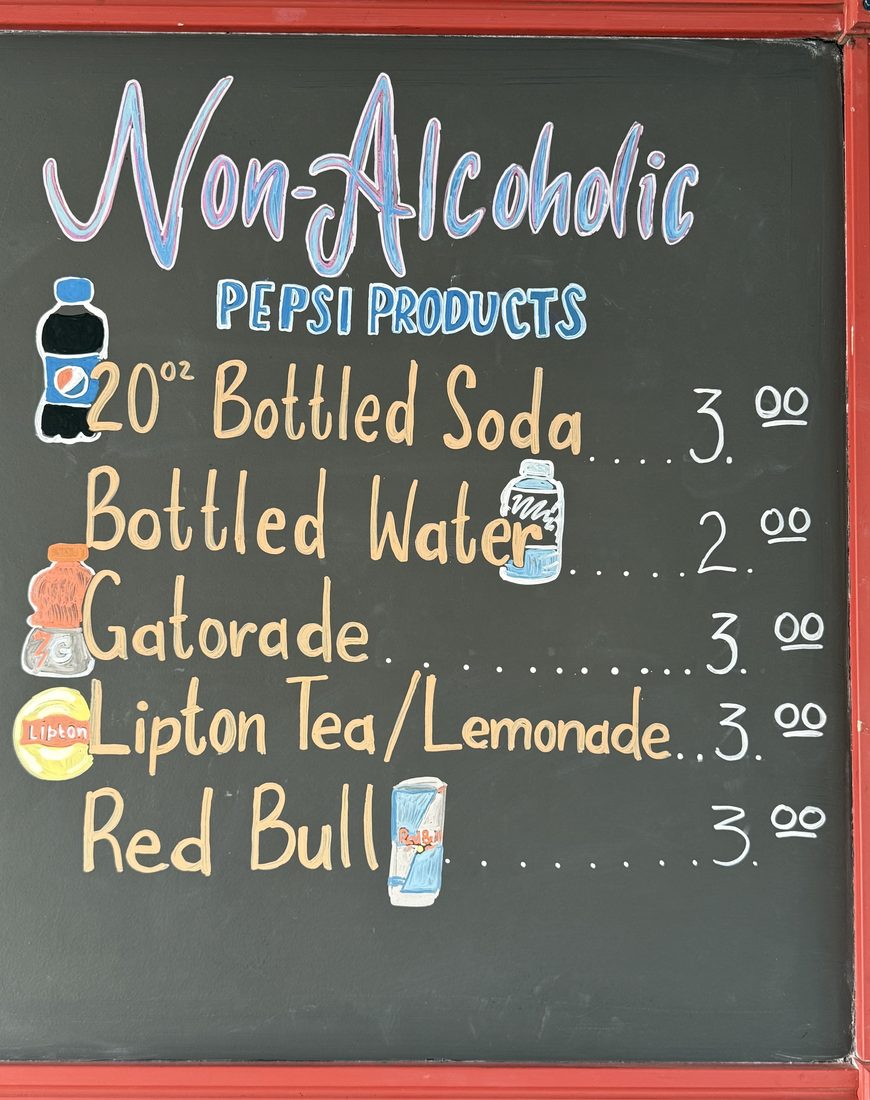 Non-Alcoholic
PEPSI PRODUCTS
20oz Bottled Soda.....3.00
Bottled Water......2.00
Gatorade..........3.00
Lipton
Lipton Tea/Lemonade..3.00
Red Bull
Red Bull........3.00